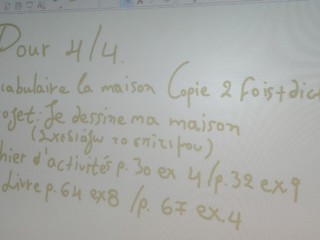 Pour 4/4.
cabulaire la maison Copie 2 fois+dict
ojet: Je dessine ma maison
(Σχεδιάζω το σπίτι μου)
hier d'activités p. 30 ex 4/p. 32 ex 9
Livre p. 64 ex 8 /p. 67 ex. 4